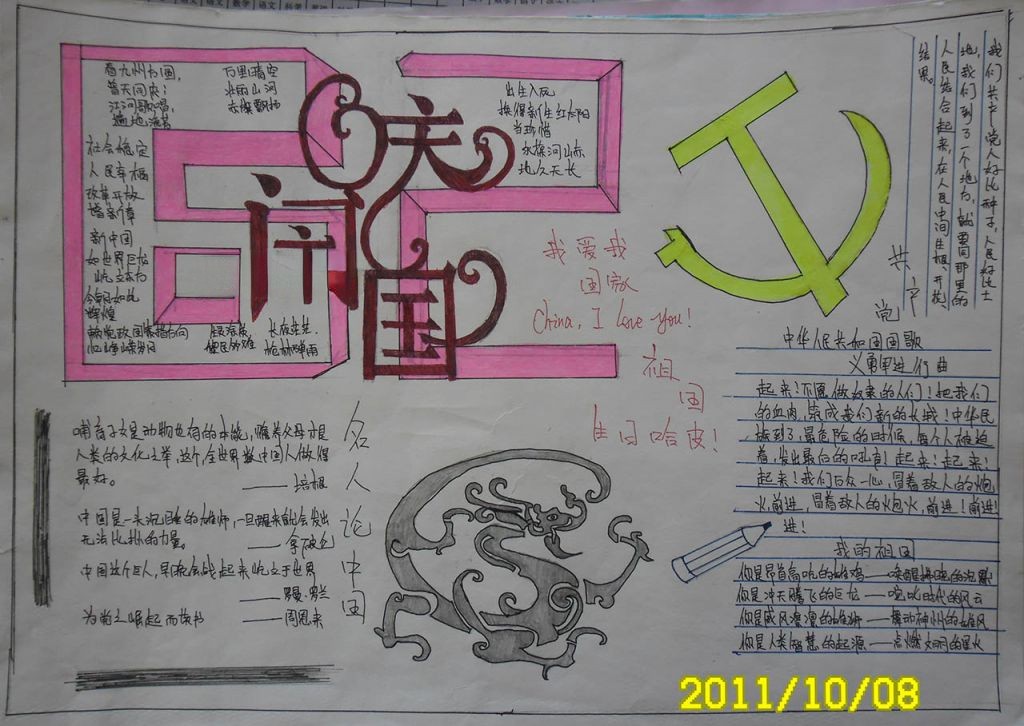 看九州方圆,
普天同庆;
江河歌唱,
遍地流芳
万里晴空
壮丽山河
赤旗飘扬
社会稳定
人民幸福
改革开放
谱新章
新中国
如世界巨龙
屹立东方
今朝如此
辉煌
长夜茫茫.
枪林弹雨
出生入死
换得新生红太阳
当珍惜
永保河山赤
地久天长
62
国庆
我爱我
国徽
China, I love you!
祖
国
生日哈皮!
共
产
党
我们共产党人好比种子,人民好比土
地,我们到了一个地方,就要同那里的
人民结合起来,在人民中间生根、开花、
结果。
中华人民共和国国歌
义勇军进行曲
起来!不愿做奴隶的人们!把我们
的血肉,筑成我们新的长城!中华民
族到了,最危险的时候,每个人被迫
着,发出最后的吼声!起来!起来!
起来!我们万众一心,冒着敌人的炮
火,前进,冒着敌人的炮火,前进!前进!
进!
我的祖国
你是昂首高吭的雄鸡——唤醒拂晓的沉默
你是冲天腾飞的巨龙——叱咤时代的风云
你是威风凛凛的雄狮——舞动神州的雄风
你是人类智慧的起源——点燃文明的星火
名人论中国
哺育子女是动物也有的本能,赡养父母才是
人类的文化之举,这个,全世界数中国人做得
最好。 ——培根
中国是一头沉睡的雄狮,一旦醒来就会发出
无法比拟的力量。 ——拿破仑
中国这个巨人,早晚会战起来屹立于世界
——罗曼·罗兰
为中华之崛起而读书 ——周恩来
2011/10/08